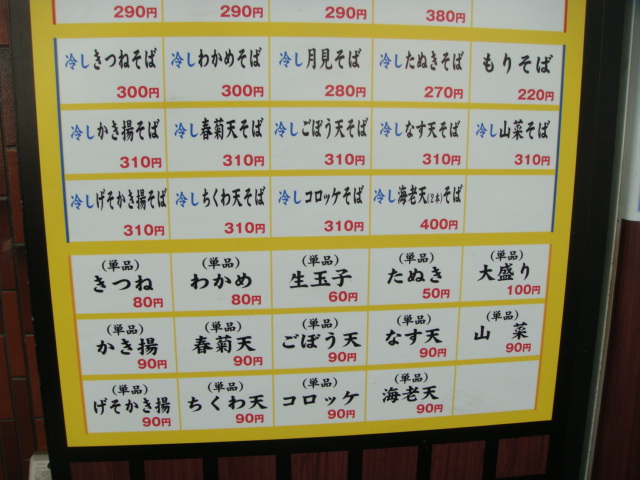 290円 290円 290円 380円
冷しきつねそば 冷しわかめそば 冷し月見そば 冷したぬきそば もりそば
300円 300円 280円 270円 220円
冷しかき揚そば 冷し春菊天そば 冷しごぼう天そば 冷しなす天そば 冷し山菜そば
310円 310円 310円 310円 310円
冷しげそかき揚そば 冷しちくわ天そば 冷しコロッケそば 冷し海老天(2本)そば
310円 310円 310円 400円
(単品) (単品) (単品) (単品) (単品)
きつね わかめ 生玉子 たぬき 大盛り
80円 80円 60円 50円 100円
(単品) (単品) (単品) (単品) (単品)
かき揚 春菊天 ごぼう天 なす天 山菜
90円 90円 90円 90円 90円
(単品) (単品) (単品) (単品)
げそかき揚 ちくわ天 コロッケ 海老天
90円 90円 90円 90円